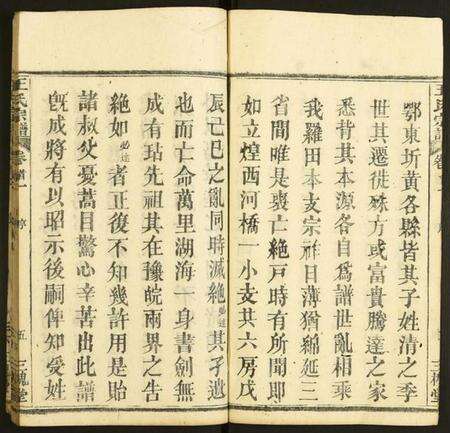 鄂東圻黃各縣皆其子姓清之季
世其遷徙殊方或富貴騰達之家
悉背其本源各自為譜世亂相乘
我羅田本支宗祚日薄猶綿延三
省間唯是喪亡絕戶時有所聞即
如立煌西河橋一小支共六房戊
辰己巳之亂同時滅絕必達其孑遺
也而亡命萬里湖海一身書劍無
成有玷先祖其在豫皖兩界之告
絕如必達者正復不知幾許用是貽
諸叔父憂蒿目驚心辛苦出此譜
既成將有以昭示後嗣俾知受姓
王氏宗譜
卷首
五
三槐堂